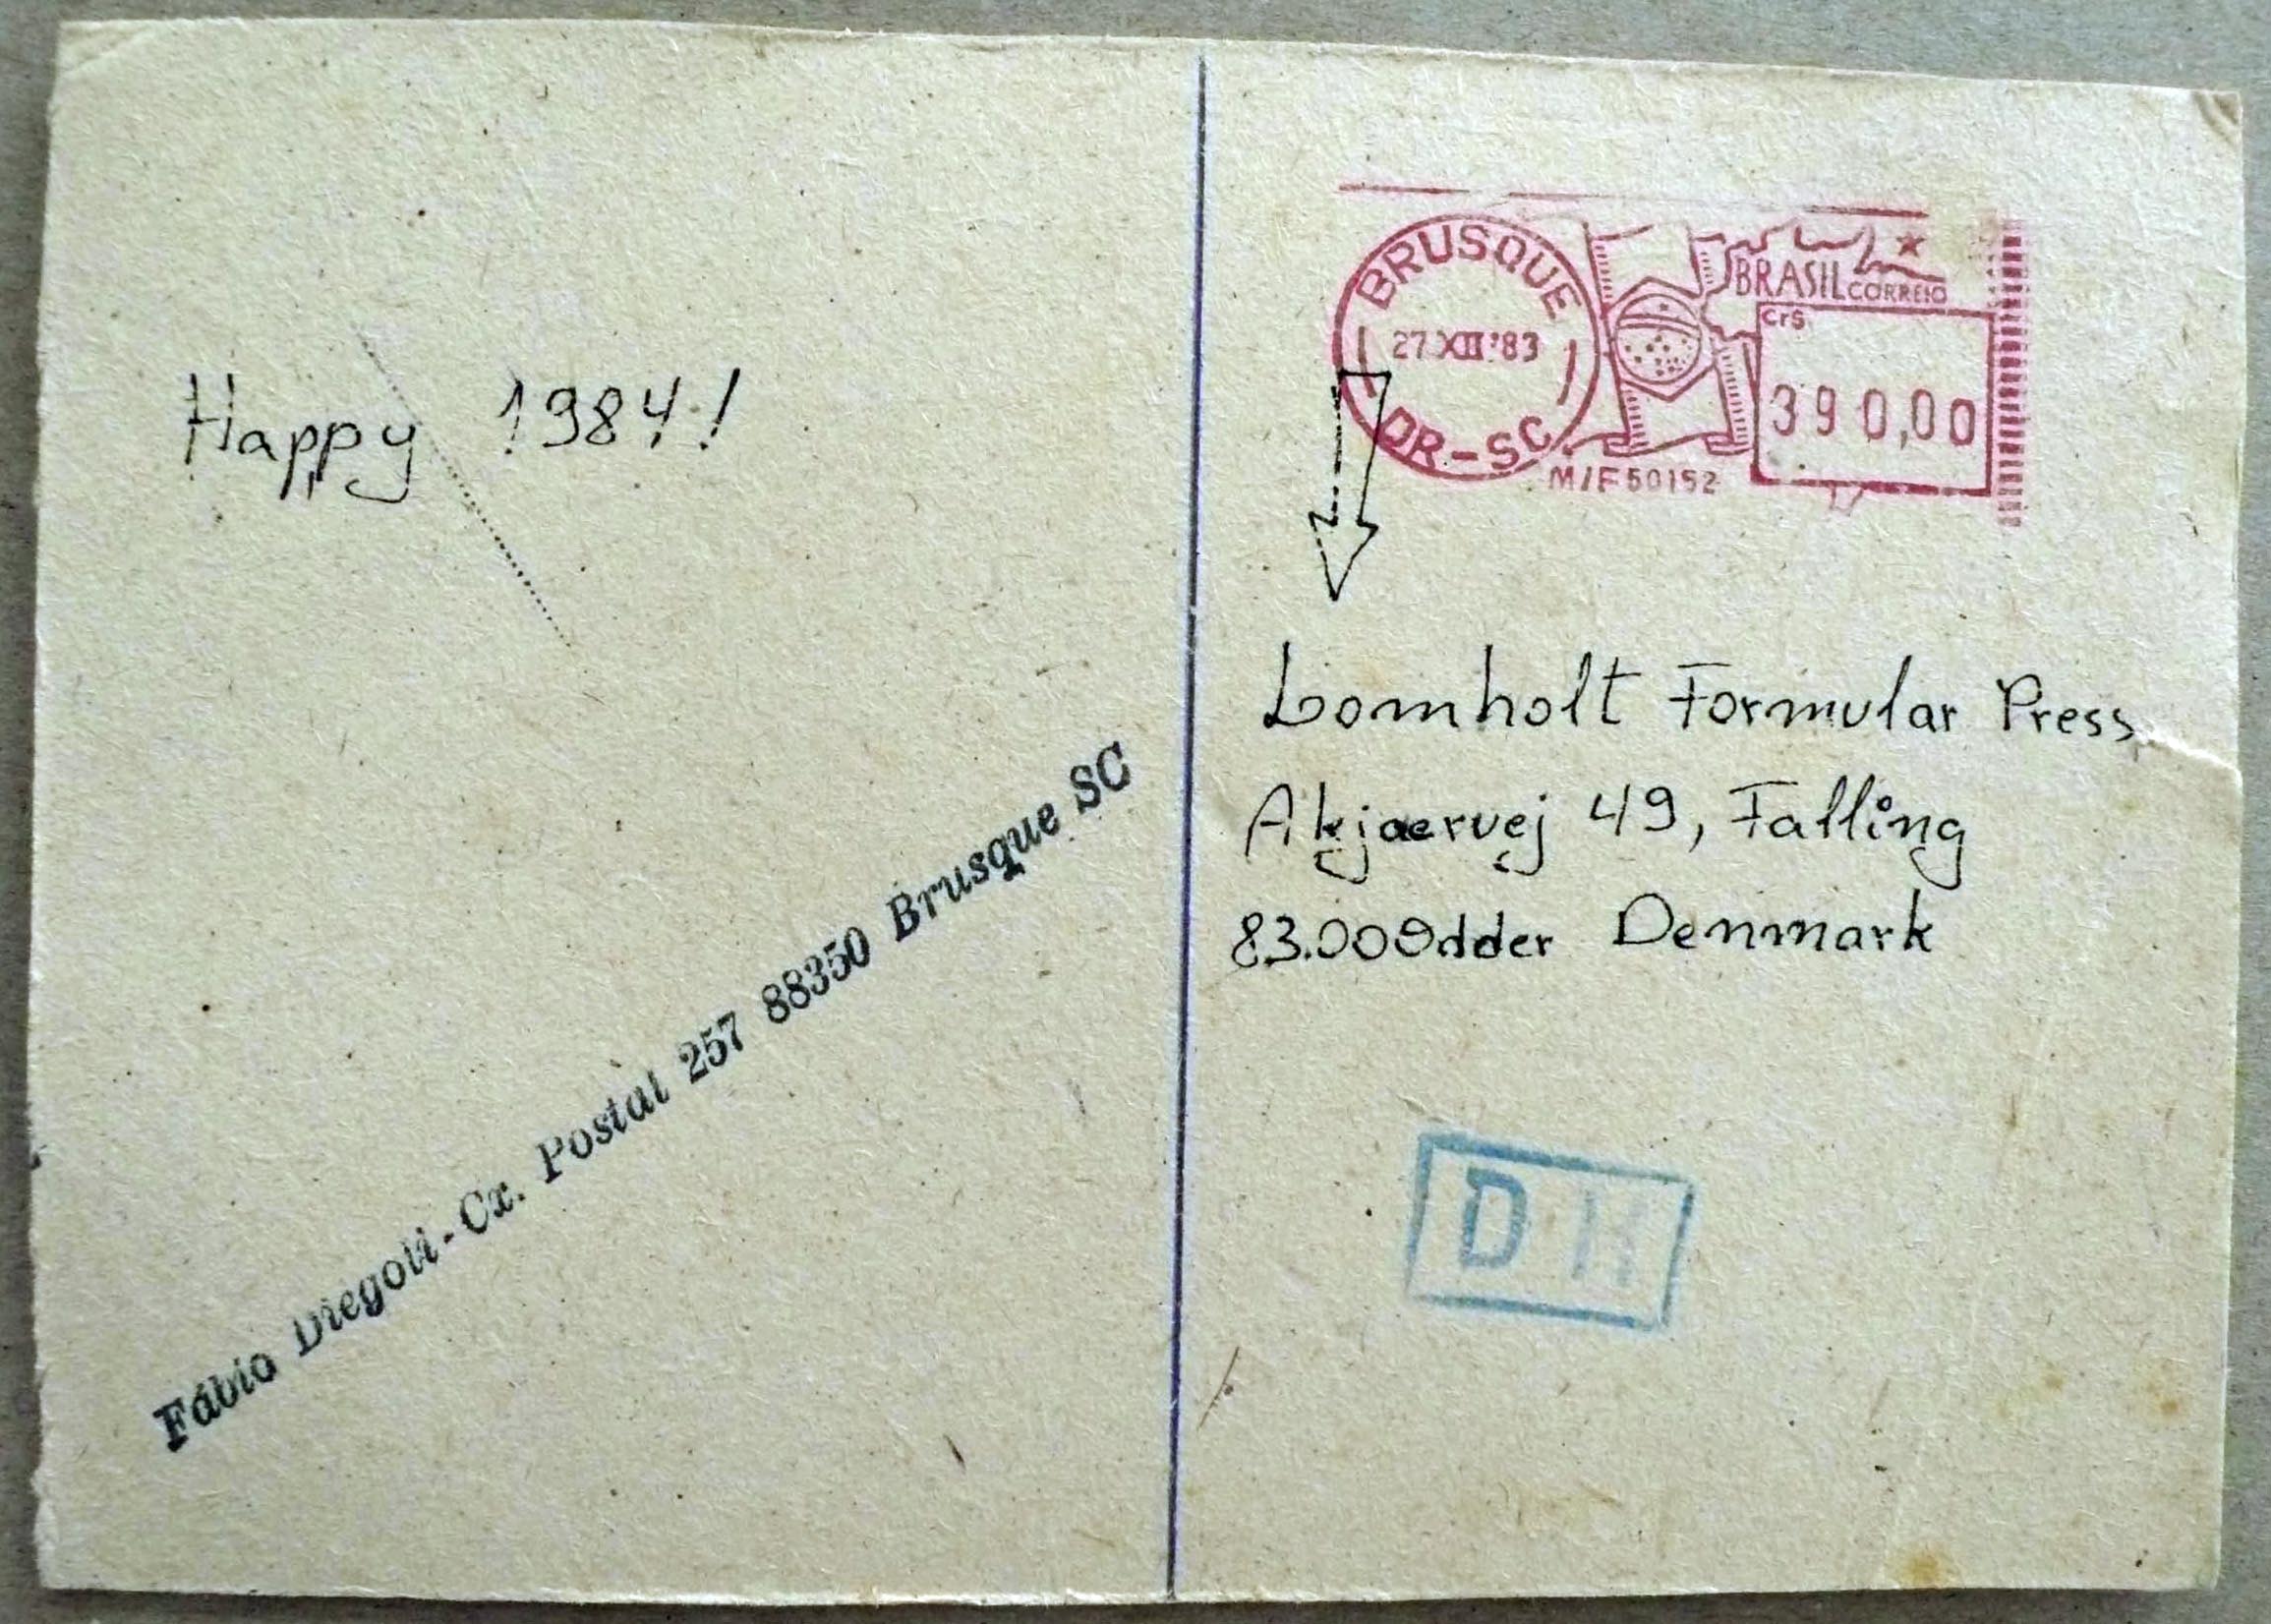 Happy 1984!
Fábio Diegoli - Cx. Postal 257 88350 Brusque SC
BRUSQUE
27 XII '83
DR-SC
M/F 50152
BRASIL CORREIO
Cr$
390,00
Lomholt Formular Press
Akjaervej 49, Falling
83.00 Odder Denmark
DK